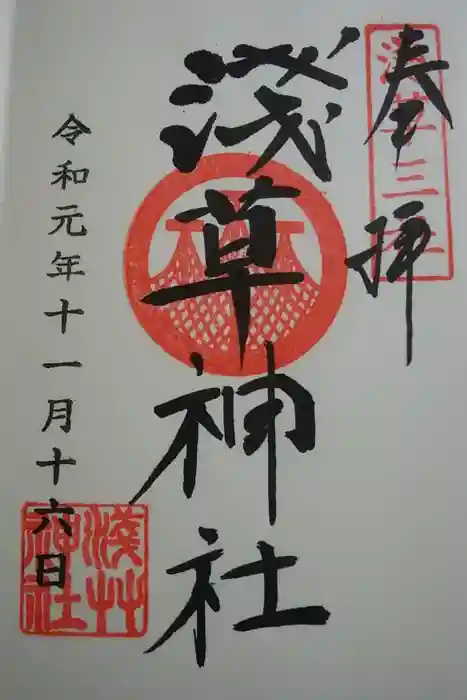 奉拝
浅草三社
淺草神社
令和元年十一月十六日
淺草神社